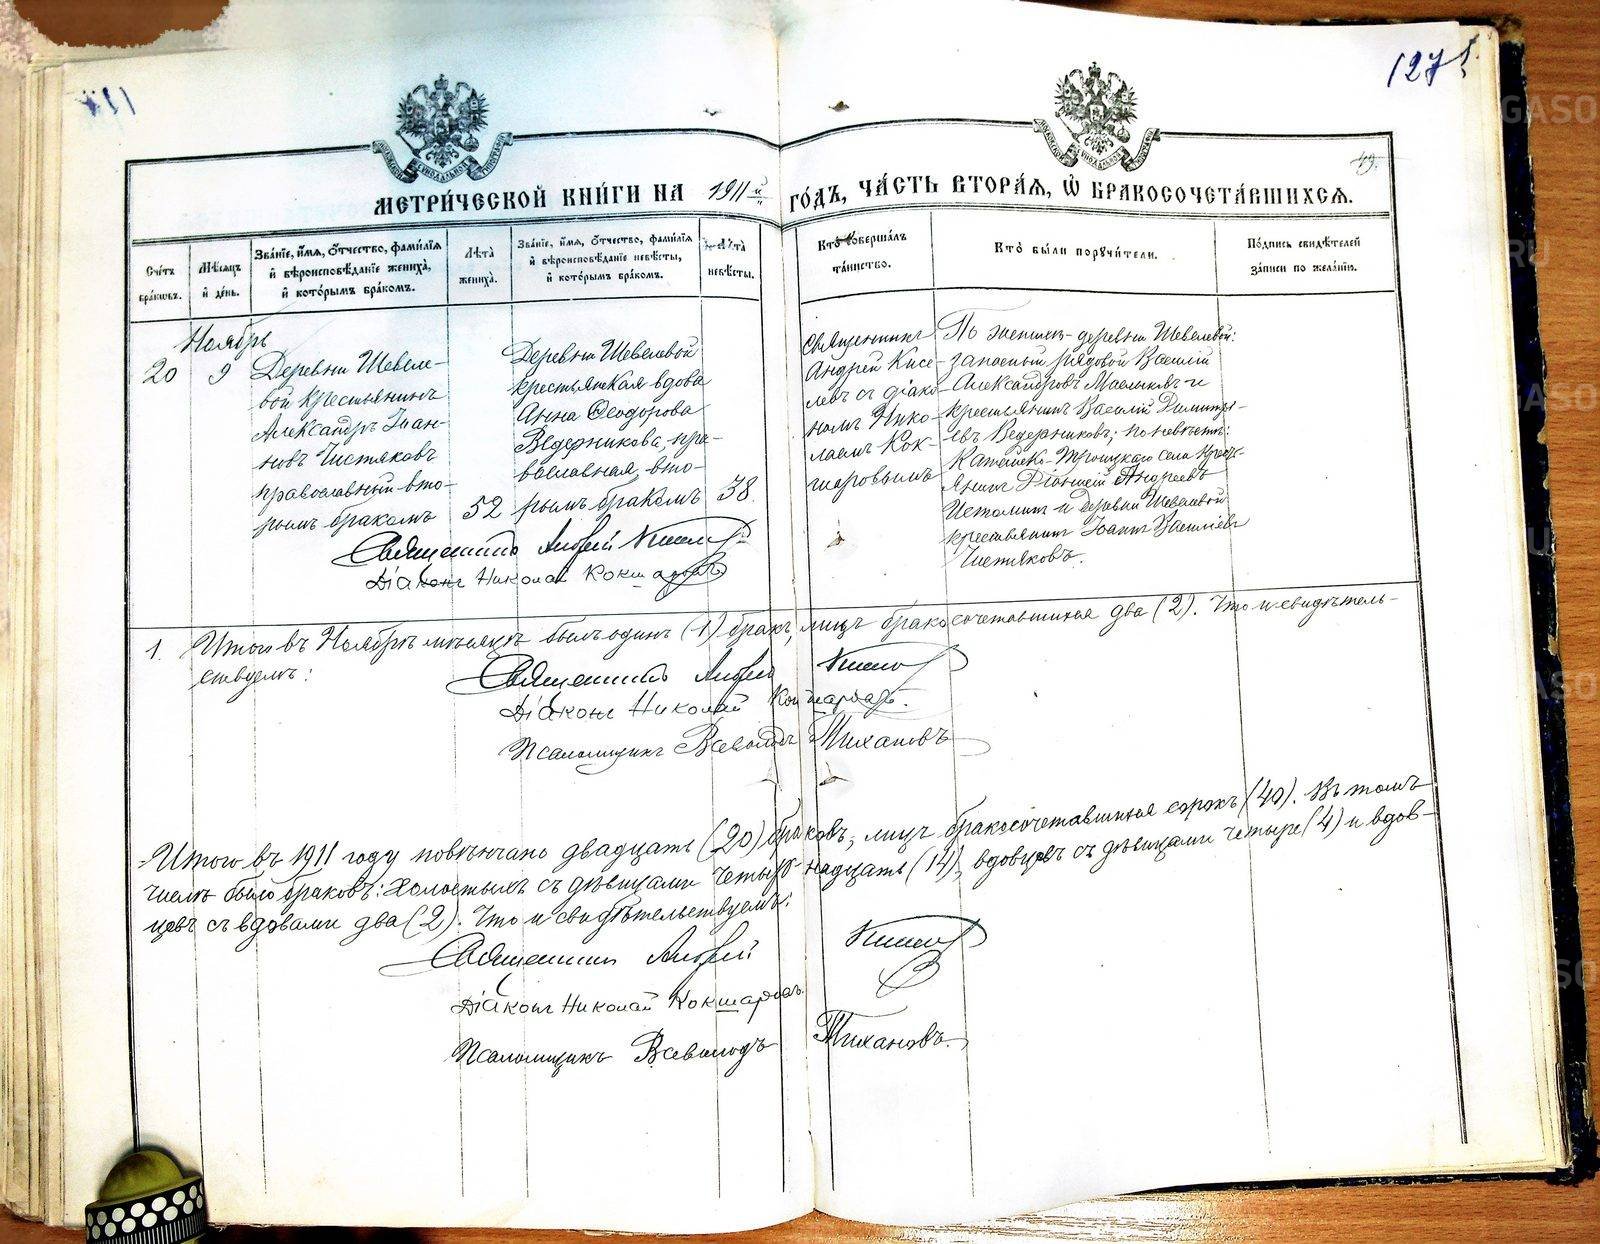 127
49.
МЕТРИ́ЧЕСКОЙ КНИ́ГИ НА 1911й ГО́ДЪ, ЧА́СТЬ ВТОРА́Я, Ѡ҆ БРАКОСОЧЕТА́ВШИХСЯ.
Сче́тъ бра́кѡвъ.
Мѣ́сяцъ и҆ де́нь.
Зва́нїе, и҆́мя, ѻ҆́тчество, фами́лїя и҆ вѣроисповѣ́данїе жениха̀, и҆ кото́рымъ бра́комъ.
Лѣ́та жениха̀.
Зва́нїе, и҆́мя, ѻ҆́тчество, фами́лїя и҆ вѣроисповѣ́данїе невѣ́сты, и҆ кото́рымъ бра́комъ.
Лѣ́та невѣ́сты.
Кто̀ соверша́лъ та́инство.
Кто̀ бы́ли поручи́тели.
По́дпись свидѣ́телей за́писи по жела́нїю.
Ноябрь
20
9
Деревни Шевеле-
вой крестьянинъ
Александръ Iоан-
новъ Чистяковъ
православный вто-
рымъ бракомъ
52
Деревни Шевелевой
крестьянская вдова
Анна Ѳеодорова
Ведерникова, пра-
вославная, вто-
рымъ бракомъ
38.
Священникъ
Андрей Кисе-
левъ съ діако-
номъ Нико-
лаемъ Кок-
шаровымъ
По женихѣ - деревни Шевелевой:
запасный рядовой Василій
Александровъ Масленковъ и
крестьянинъ Василій Димитрі-
евъ Ведерниковъ; по невѣстѣ:
Троицкаго села кресть-
янинъ Діонисій Андреевъ
Истоминъ и деревни Шевелевой
крестьянинъ Іоаннъ Васильевъ
Чистяковъ.
Священникъ Андрей Киселевъ
Діаконъ Николай Кокшаровъ
1. Итого въ Ноябрѣ мѣсяцѣ былъ одинъ (1) бракъ, лицъ бракосочетавшихся два (2). Что и свидѣтель-
ствуемъ:
Священникъ Андрей Киселевъ
Діаконъ Николай Кокшаровъ.
Псаломщикъ Всеволодъ Тихановъ
Итого въ 1911 году повѣнчано двадцать (20) браковъ, лицъ бракосочетавшихся сорокъ (40). Въ томъ
числѣ было браковъ: холостыхъ съ дѣвицами четыр- надцать (14), вдовцевъ съ дѣвицами четыре (4) и вдов-
цевъ съ вдовами два (2). Что и свидѣтельствуемъ:
Священникъ Андрей Киселевъ
Діаконъ Николай Кокшаровъ.
Псаломщикъ Всеволодъ Тихановъ.